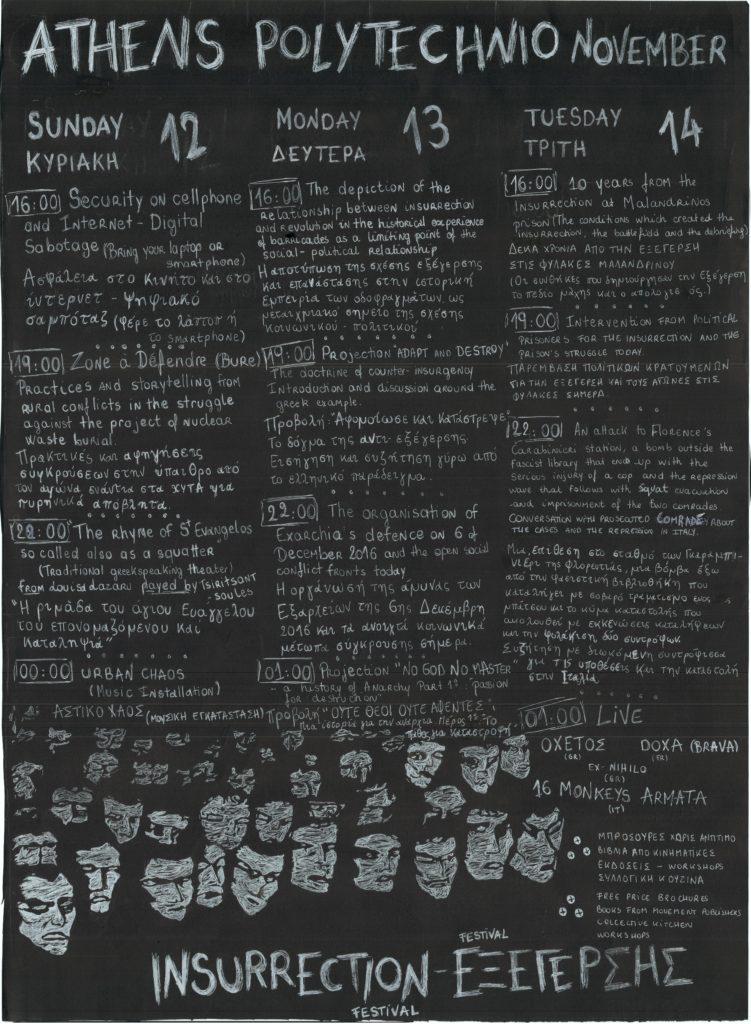 ATHENS POLYTECHNIO NOVEMBER
SUNDAY 12
ΚΥΡΙΑΚΗ
16:00 Security on cellphone
and Internet - Digital
Sabotage (Bring your laptop or
smartphone)
Ασφάλεια στο κινητό και στο
ίντερνετ - ψηφιακό
σαμποτάζ (φέρε το λάπτοπ ή
το smartphone)
19:00 Zone à Défendre (Bure)
Practices and storytelling from
rural conflicts in the struggle
against the project of nuclear
waste burial.
Πρακτικές και αφηγήσεις
συγκρούσεων στην ύπαιθρο από
τον αγώνα ενάντια στα ΧΥΤΑ για
πυρηνικά απόβλητα.
22:00 "The rhyme of St Evangelos
so called also as a squatter"
(Traditional greekspeaking theater)
from louisdalazaru played by Tsiritsant
soules
"Η ριμάδα του άγιου Ευαγγέλου
του επονομαζόμενου και
καταληψία"
00:00 URBAN CHAOS
(Music Installation)
ΑΣΤΙΚΟ ΧΑΟΣ (ΜΟΥΣΙΚΗ ΕΓΚΑΤΑΣΤΑΣΗ)
MONDAY 13
ΔΕΥΤΕΡΑ
16:00 The depiction of the
relationship between insurrection
and revolution in the historical experience
of barricades as a limiting point of the
social-political relationship
Η αποτύπωση της σχέσης εξέγερσης
και επανάστασης στην ιστορική
εμπειρία των οδοφραγμάτων, ως
μεταιχμιακό σημείο της σχέσης
κοινωνικού - πολιτικού
19:00 Projection "ADAPT AND DESTROY"
The doctrine of counter-insurgency
Introduction and discussion around the
greek example.
Προβολή: "Αφομοίωσε και κατάστρεψε"
Το δόγμα της αντι-εξέγερσης
Εισήγηση και συζήτηση γύρω από
το ελληνικό παράδειγμα.
22:00 The organisation of
Exarchia's defence on 6 of
December 2016 and the open social
conflict fronts today
Η οργάνωση της άμυνας των
Εξαρχείων της 6ης Δεκέμβρη
2016 και τα ανοιχτά κοινωνικά
μέτωπα σύγκρουσης σήμερα.
01:00 Projection "NO GOD NO MASTER"
- a history of Anarchy Part 1: "passion
for destruction"
Προβολή "ΟΥΤΕ ΘΕΟΙ ΟΥΤΕ ΑΦΕΝΤΕΣ"
Μια ιστορία για την αναρχία Μέρος 1: Το
πάθος για καταστροφή.
TUESDAY 14
ΤΡΙΤΗ
16:00 10 years from the
insurrection at Malandrinos
prison (The conditions which created the
insurrection, the battlefield and the debriefing)
ΔΕΚΑ ΧΡΟΝΙΑ ΑΠΟ ΤΗΝ ΕΞΕΓΕΡΣΗ
ΣΤΙΣ ΦΥΛΑΚΕΣ ΜΑΛΑΝΔΡΙΝΟΥ
(Οι συνθήκες που δημιούργησαν την εξέγερση
το πεδίο μάχης και ο απολογισμός.)
19:00 INTERVENTION FROM POLITICAL
PRISONERS FOR THE INSURRECTION AND THE
PRISON'S STRUGGLE TODAY.
ΠΑΡΕΜΒΑΣΗ ΠΟΛΙΤΙΚΩΝ ΚΡΑΤΟΥΜΕΝΩΝ
ΓΙΑ ΤΗΝ ΕΞΕΓΕΡΣΗ ΚΑΙ ΤΟΥΣ ΑΓΩΝΕΣ ΣΤΙΣ
ΦΥΛΑΚΕΣ ΣΗΜΕΡΑ.
22:00 An attack to Florence's
Carabinieri station, a bomb outside the
fascist library that ends up with the
serious injury of a cop and the repression
wave that follows with squat evacuation
and imprisonment of the two comrades
CONVERSATION WITH PROSECUTED COMRADE ABOUT
THE CASES AND THE REPRESSION IN ITALY.
Μια επίθεση στο σταθμό των Καραμπι-
νιέρι της Φλορεντίας, μια βόμβα έξω
από την φασιστική βιβλιοθήκη που
καταλήγει με σοβαρό τραυματισμό ενός
μπάτσου και το κύμα καταστολής που
ακολουθεί με εκκενώσεις καταλήψεων
και την φυλάκιση δύο συντρόφων.
Συζήτηση με διωκόμενη συντρόφισσα
για τις υποθέσεις και την καταστολή
στην Ιταλία.
01:00 LIVE
ΟΧΕΤΟΣ DOXA (BRAVA)
(GR) (FR)
EX-NIHILO
(GR)
16 MONKEYS ARMATA
(IT)
ΜΠΡΟΣΟΥΡΕΣ ΧΩΡΙΣ ΑΝΤΙΤΙΜΟ
ΒΙΒΛΙΑ ΑΠΟ ΚΙΝΗΜΑΤΙΚΕΣ
ΕΚΔΟΣΕΙΣ - WORKSHOPS
ΣΥΛΛΟΓΙΚΗ ΚΟΥΖΙΝΑ
FREE PRICE BROCHURES
BOOKS FROM MOVEMENT PUBLISHERS
COLLECTIVE KITCHEN
WORKSHOPS
FESTIVAL
INSURRECTION - ΕΞΕΓΕΡΣΗΣ
FESTIVAL